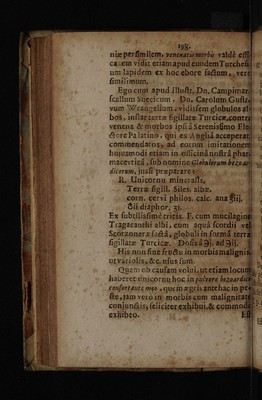 198.
niæ persimilem, venenatis morbis valdè effi
cacem vidit etiam apud eundem Turchesi
um lapidem ex hoc ebore factum, vero
simillimum.
Ego cum apud Illustr. Dn. Campimar-
scallum Suecicum, Dn. Carolum Gusta-
vum Wrangelium, vidissem globulos al-
bos, instar terræ sigillatæ Turcicæ, contra
venena & morbos ipsi à Serenissimo Ele-
ctore Palatino, qui ex Angliâ acceperat,
commendatos, ad eorum imitationem
hujusmodi etiam in officinâ nostrâ phar-
maceuticâ, sub nomine Globulorum bezoar-
dicorum, jussi præparare:
R. Unicornu mineralis,
Terræ sigill. Siles. albæ,
corn. cervi philos. calc. ana
Olii diaphor.
Ex subtilissimè tritis. F. cum mucilagine
Tragacanthi albi, cum aquâ scordii vel
Scorzoneræ factâ, globuli in formâ terræ
sigillatæ Turcicæ. Dosis à ℈j. ad ℈ij.
His non sine fructu in morbis malignis,
ut variolis, &c. usus sum.
Quam ob causam volui, ut etiam locum
haberet unicornu hoc in pulvere bezoardico
confortante meo, quem ægris antehac in pe-
ste, jam vero in morbis cum malignitate
conjunctis, feliciter exhibui, & commodè
exhibeo.
Est